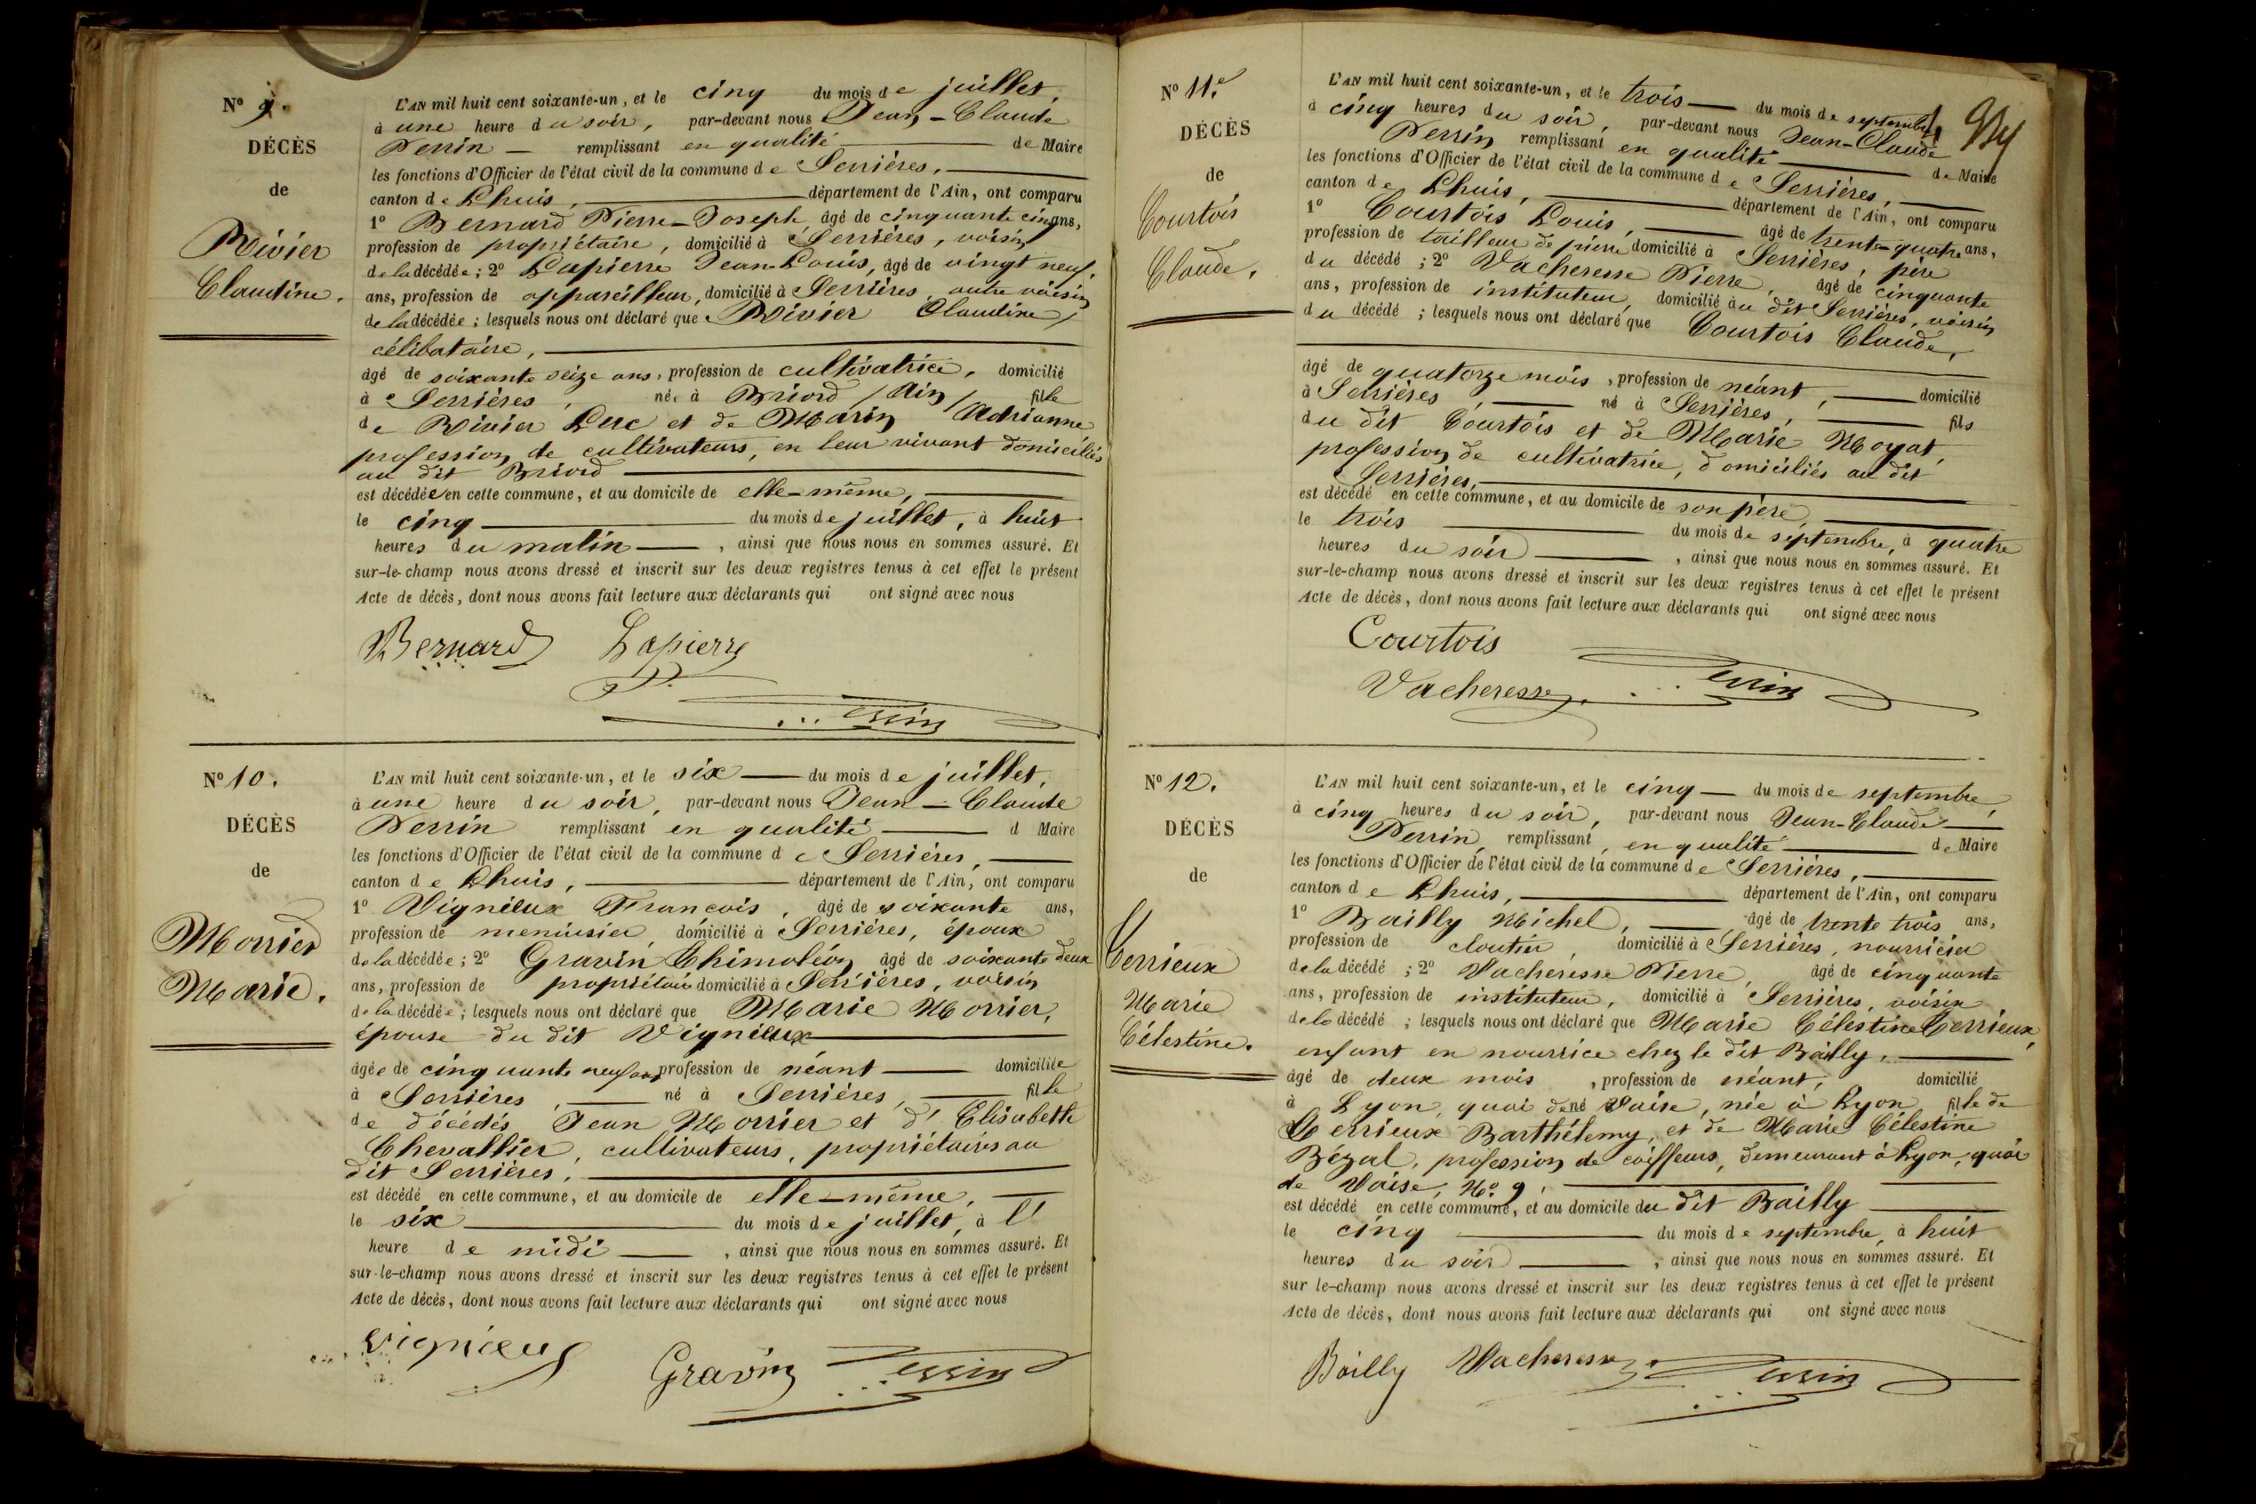 N° 9.
DÉCÈS
de
Rivier
Claudine.
L'AN mil huit cent soixante-un, et le cinq du mois de juillet,
à une heure du soir, par-devant nous Jean-Claude
Perrin remplissant en qualité de Maire
les fonctions d'Officier de l'état civil de la commune de Serrières,
canton de Lhuis, département de l'Ain, ont comparu
1° Bernard Pierre-Joseph, âgé de cinquante cinq ans,
profession de propriétaire, domicilié à Serrières, voisin
de la décédée; 2° Lapierre Jean-Louis, âgé de vingt neuf,
ans, profession de appareilleur, domicilié à Serrières, autre voisin
de la décédée; lesquels nous ont déclaré que Rivier Claudine,
célibataire,
âgé de soixante seize ans, profession de cultivatrice, domicilié
à Serrières, née à Briord /Ain/ fille
de Rivier Luc et de Marin Adrianne
profession de cultivateurs, en leur vivant domiciliés
au dit Briord
est décédée en cette commune, et au domicile de elle-même,
le cinq du mois de juillet, à huit
heures du matin, ainsi que nous nous en sommes assuré. Et
sur-le-champ nous avons dressé et inscrit sur les deux registres tenus à cet effet le présent
Acte de décès, dont nous avons fait lecture aux déclarants qui ont signé avec nous
Bernard Lapierre
Perrin
N° 10.
DÉCÈS
de
Morrier
Marie.
L'AN mil huit cent soixante-un, et le six du mois de juillet,
à une heure du soir, par-devant nous Jean-Claude
Perrin remplissant en qualité d Maire
les fonctions d'Officier de l'état civil de la commune de Serrières,
canton de Lhuis, département de l'Ain, ont comparu
1° Vignieux François, âgé de soixante ans,
profession de menuisier, domicilié à Serrières, époux
de la décédée; 2° Gravin Thimoléon, âgé de soixante deux
ans, profession de propriétaire domicilié à Serrières, voisin
de la décédée; lesquels nous ont déclaré que Marie Morrier,
épouse du dit Vignieux
âgée de cinquante neuf ans profession de néant domiciliée
à Serrières, né à Serrières, fille
de décédés Jean Morrier et d'Elisabeth
Chevallier, cultivateurs, propriétaires au
dit Serrières,
est décédé en cette commune, et au domicile de elle-même,
le six du mois de juillet, à l'
heure de midi, ainsi que nous nous en sommes assuré. Et
sur-le-champ nous avons dressé et inscrit sur les deux registres tenus à cet effet le présent
Acte de décès, dont nous avons fait lecture aux déclarants qui ont signé avec nous
Vignieux Gravin Perrin
N° 11.
DÉCÈS
de
Courtois
Claude.
L'AN mil huit cent soixante-un, et le trois du mois de septembre,
à cinq heures du soir, par-devant nous Jean-Claude
Perrin remplissant en qualité de Maire
les fonctions d'Officier de l'état civil de la commune de Serrières,
canton de Lhuis, département de l'Ain, ont comparu
1° Courtois Louis, âgé de trente-quatre ans,
profession de tailleur de pierre domicilié à Serrières, père
du décédé; 2° Vacheresse Pierre, âgé de cinquante
ans, profession de instituteur, domicilié au dit Serrières, voisin
du décédé; lesquels nous ont déclaré que Courtois Claude,
âgé de quatorze mois, profession de néant, domicilié
à Serrières, né à Serrières, fils
du dit Courtois et de Marie Moyat,
profession de cultivatrice, domiciliés au dit
Serrières,
est décédé en cette commune, et au domicile de son père
le trois du mois de septembre, à quatre
heures du soir, ainsi que nous nous en sommes assuré. Et
sur-le-champ nous avons dressé et inscrit sur les deux registres tenus à cet effet le présent
Acte de décès, dont nous avons fait lecture aux déclarants qui ont signé avec nous
Courtois
Vacheresse Perrin
N° 12.
DÉCÈS
de
Cerrieux
Marie
Célestine.
L'AN mil huit cent soixante-un, et le cinq du mois de septembre,
à cinq heures du soir, par-devant nous Jean-Claude
Perrin, remplissant, en qualité de Maire
les fonctions d'Officier de l'état civil de la commune de Serrières,
canton de Lhuis, département de l'Ain, ont comparu
1° Bailly Michel, âgé de trente trois ans,
profession de cloutier, domicilié à Serrières, nourricier
de la décédé; 2° Vacheresse Pierre, âgé de cinquante
ans, profession de instituteur, domicilié à Serrières, voisin
de la décédé; lesquels nous ont déclaré que Marie Célestine Cerrieux,
enfant en nourrice chez le dit Bailly,
âgé de deux mois, profession de néant, domicilié
à Lyon, quai de né Vaise, née à Lyon fille de
Cerrieux Barthélemy, et de Marie Célestine
Bézal, profession de coiffeurs, demeurant à Lyon, quai
de Vaise, N° 9.
est décédé en cette commune, et au domicile du dit Bailly
le cinq du mois de septembre, à huit
heures du soir, ainsi que nous nous en sommes assuré. Et
sur le-champ nous avons dressé et inscrit sur les deux registres tenus à cet effet le présent
Acte de décès, dont nous avons fait lecture aux déclarants qui ont signé avec nous
Bailly Vacheresse Perrin